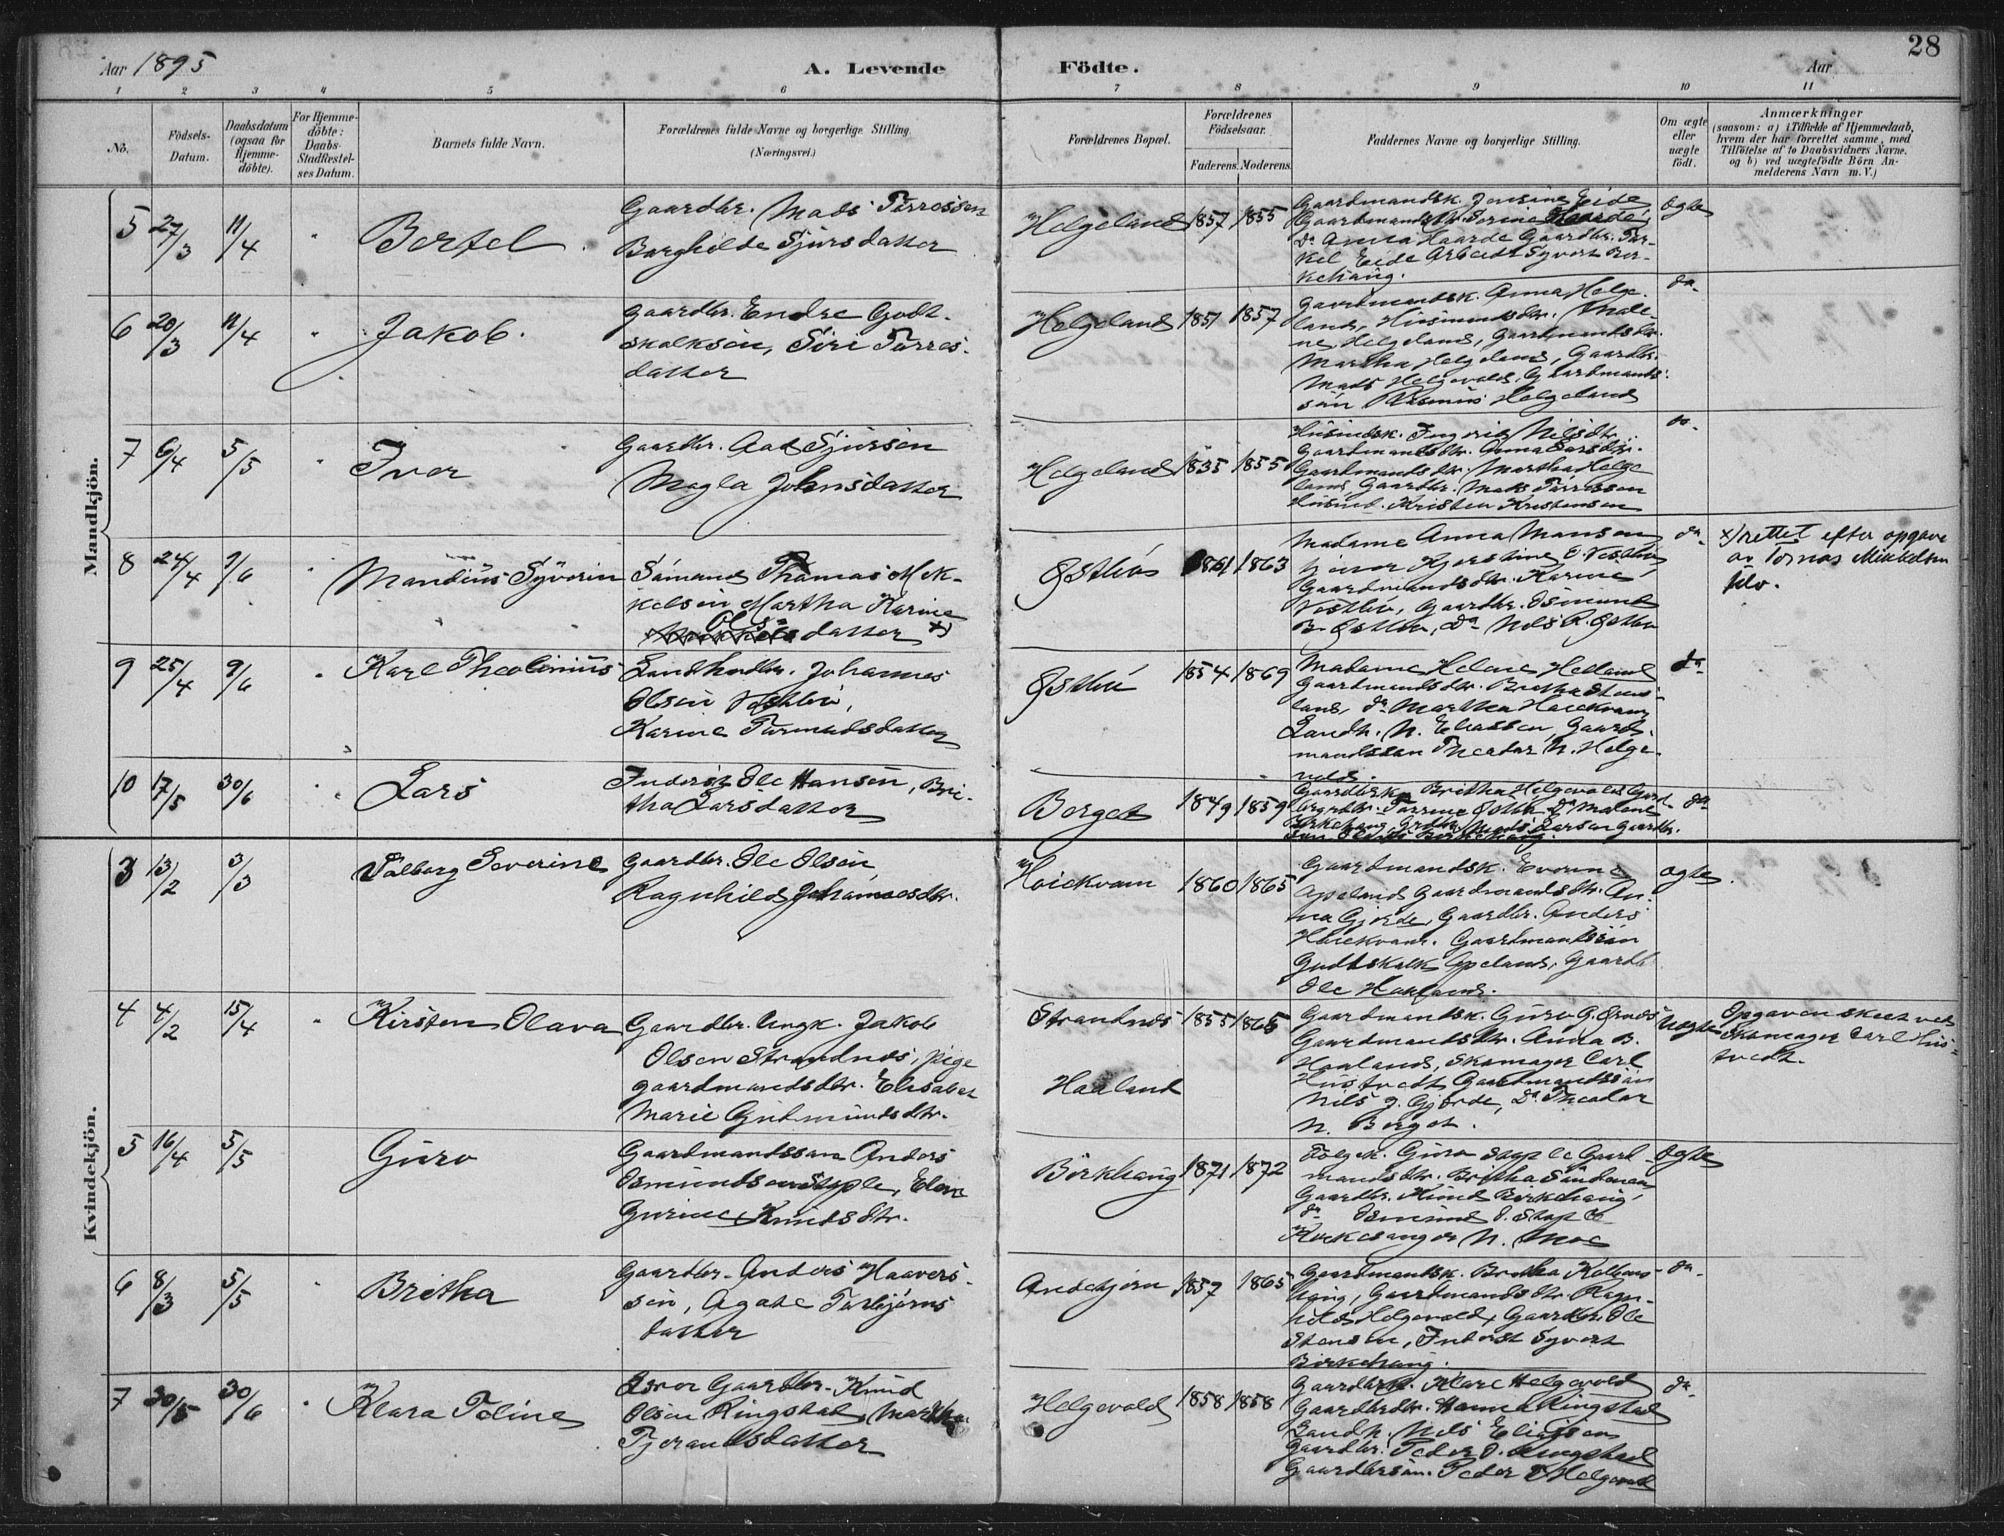 Aar 1895
A. Levende
Födte.
Aar
28
1 2 3 4 5 6 7 8 9 10 11
No.
Födsels-
Datum.
Daabsdatum
(ogsaa for
Hjemme-
döbte).
For Hjemme-
döbte:
Daabs-
Stadfæstel-
ses Datum.
Barnets fulde Navn.
Forældrenes fulde Navne og borgerlige Stilling.
(Næringsvei.)
Forældrenes Bopæl.
Forældrenes
Födselsaar.
Faderens. Moderens.
Faddernes Navne og borgerlige Stilling.
Om ægte
eller
uægte
födt.
Anmærkninger
(saasom: a) i Tilfælde af Hjemmedaab,
hvem der har forrettet samme, med
Tilföielse af to Daabsvidners Navne.
og b) ved uægtefödte Börn An-
melderens Navn m. V.)
Mandkjön.
5 27/3 11/4 Bertel
Gaardbr. Mads Tørressen
Borghilde Sjursdatter
Helgeland 1857 1855
Gaardmandsk. Jensine Eide
Gaardmandsdtr. Serine Haarde
Da Anna Haarde Gaardbr. Tor-
kel Eide Arbeider Syvert Bir-
kehaug.
ægte
6 20/3 11/4 Jakob.
Gaardbr. Endre Godt-
skalksen, Siri Tørres-
datter
Helgeland 1851 1857
Gaardmandsk. Anna Helge-
land, Husmandsdtr. Male-
ne Helgeland, Gaardmandsdtr.
Martha Helgeland, Gaardbr.
Mads Helgevold, Gaardmands-
søn Rasmus Helgeland
da.
7 6/4 5/5 Iver
Gaardbr. Aad Sjursen
Magla Johnsdatter
Helgeland 1835 1855
Husmdsk. Ingerid Nilsdtr.
Gaardmandsdtr. Anna Larsdtr.
Gaardmandsdtr. Martha Helge
land Gaardbr. Mads Tørressen
Husmd. Kristen Kristensen
da.
8 24/4 9/6 Mandius Syverin
Sömand Thomas Mik-
kelsen Martha Karine
Ols-
datter x)
Østbø 1861 1863
Madame Anna Mansen
Gaardmandsdtr. Karine
Vestbø, Gaardbr. Osmund
B. Østbø, Da Nils R. Østbø
da.
x) rettet efter opgave
av Tomas Mikkelsen
selv.
9 25/4 9/6 Karl Theolinius
Landhndlr. Johannes
Olsen Vestbø,
Karine Tormodsdatter
Østbø 1854 1869
Madame Helene Helland
Gaardmandsdtr. Bretha Steens-
land, Da Martha Hoiekvam
Landh. N. Eliassen, Gaard-
mandssøn Theodor N. Helge-
vold.
da
10 17/5 30/6 Lars
Inderst Ole Hansen, Bri-
tha Larsdatter
Berget 1849 1859
Gaardbrk. Bretha Helgevold Gard-
da
Kvindekjön.
3 13/2 3/3 Valborg Severine
Gaardbr. Ole Olsen
Ragnhild Johannesdtr.
Hoiekvam 1860 1865
Gaardmandsk. Everine
Apeland Gaardmandsdtr. An-
na Gjerde, Gaardbr. Anders
Hoiekvam. Gaardmandssøn
Gudtskalk Apeland, Gaardb
Ole Haaland.
ægte.
4 4/2 15/4 Kirsten Olava
Gaardbr. Ungk. Jakob
Olsen Strandnes, pige
gaardmandsdtr. Elisabet
Marie Gudmundsdtr.
Strandnes 1855 1865
Haaland
Gaardmandsk. Guro G.
Gaardmandsdtr. Anna B.
Haaland, Skomager Carl
Hustvedt Gaardmandssøn
Nils J. Gjerde, Da Theodor
N. Berget.
Uægte
Opgaven skeet ved
Skomager Carl Hus-
tvedt.
5 16/4 5/5 Guro
Gaardmandssøn Anders
Osmundsen Støple, Elen
Gurine Knudsdtr.
Börkhaug 1871 1872
Gaard-
mandsdtr. Britha
Gaardbr. Knud Birkehaug,
da Osmund O. Støple
Kirkesanger N. Moe
Ægte
6 8/3 5/5 Bretha
Gaardbr. Anders Haavers-
søn, Agate Torbjørns
datter
Andebjørn 1857 1865
Gaardmandsk. Bretha
haug, Gaardmandsdtr. Ragn-
hild Helgevold, Gaardbr. Ole
Stensen, Inderst Syvert
Birkehaug.
da.
7 30/5 30/6 Klara Toline
Gaardbr. Knud
Olsen Ringstad, Martha
Tjerandsdatter
Helgevold 1858 1858
Gaardbrk. Klare Helgevold
Gaardbrdtr. Hanna Ringstad
Landh. Nils Eliassen
Gaardbr. Peder O. Ringstad
Gaardbrsøn. Peder T. Helgevold
da.